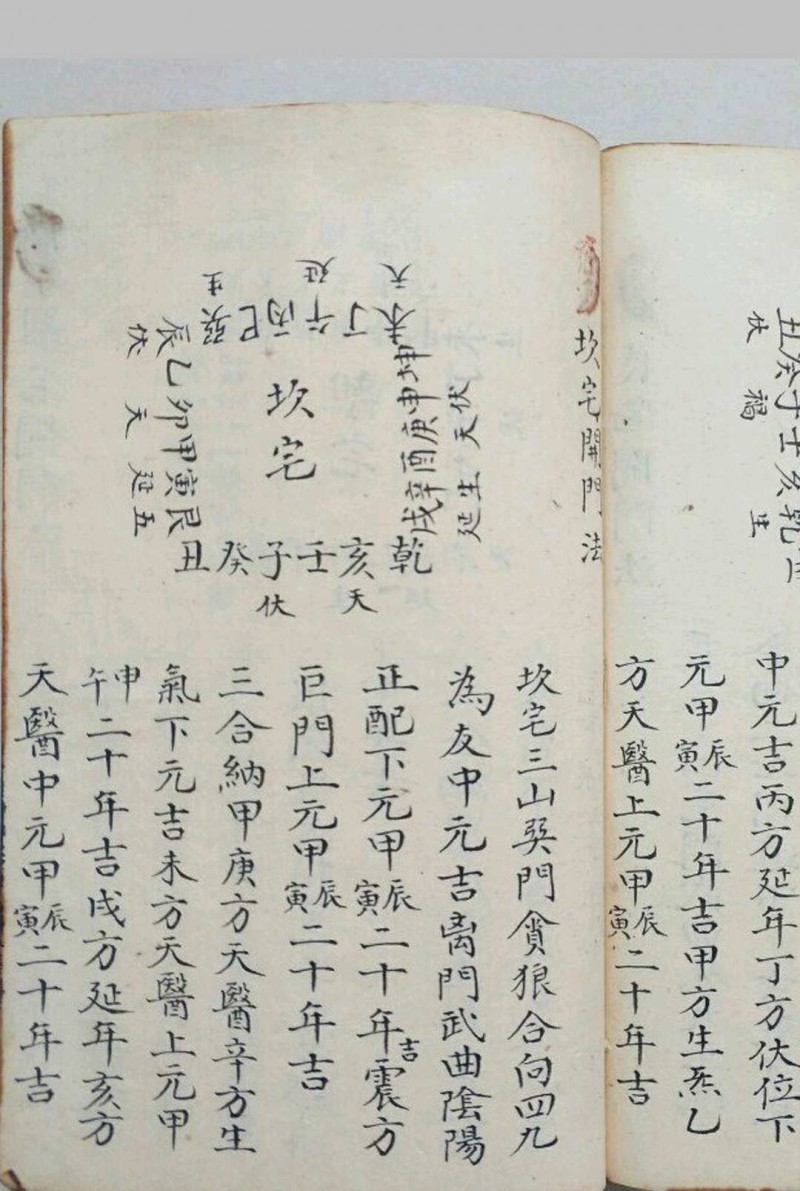 丑癸子壬亥乾
伏 福 生
中元吉丙方延年丁方伏位下
元甲寅辰二十年吉甲方生炁乙
方天醫上元甲寅辰二十年吉
坎宅開門法
天 延 生
未丁午丙巳巽
坤申庚酉辛戌
伏天生延
坎宅
辰乙卯甲寅艮
伏 天 延 五
乾亥壬子癸丑
天 伏
坎宅三山巽門貪狼合向四九
為友中元吉离門武曲陰陽
正配下元甲寅辰二十年吉震方
巨門上元甲寅辰二十年吉
三合納甲庚方天醫辛方生
氣下元吉未方天醫上元甲
午申二十年吉戌方延年亥方
天醫中元甲寅辰二十年吉